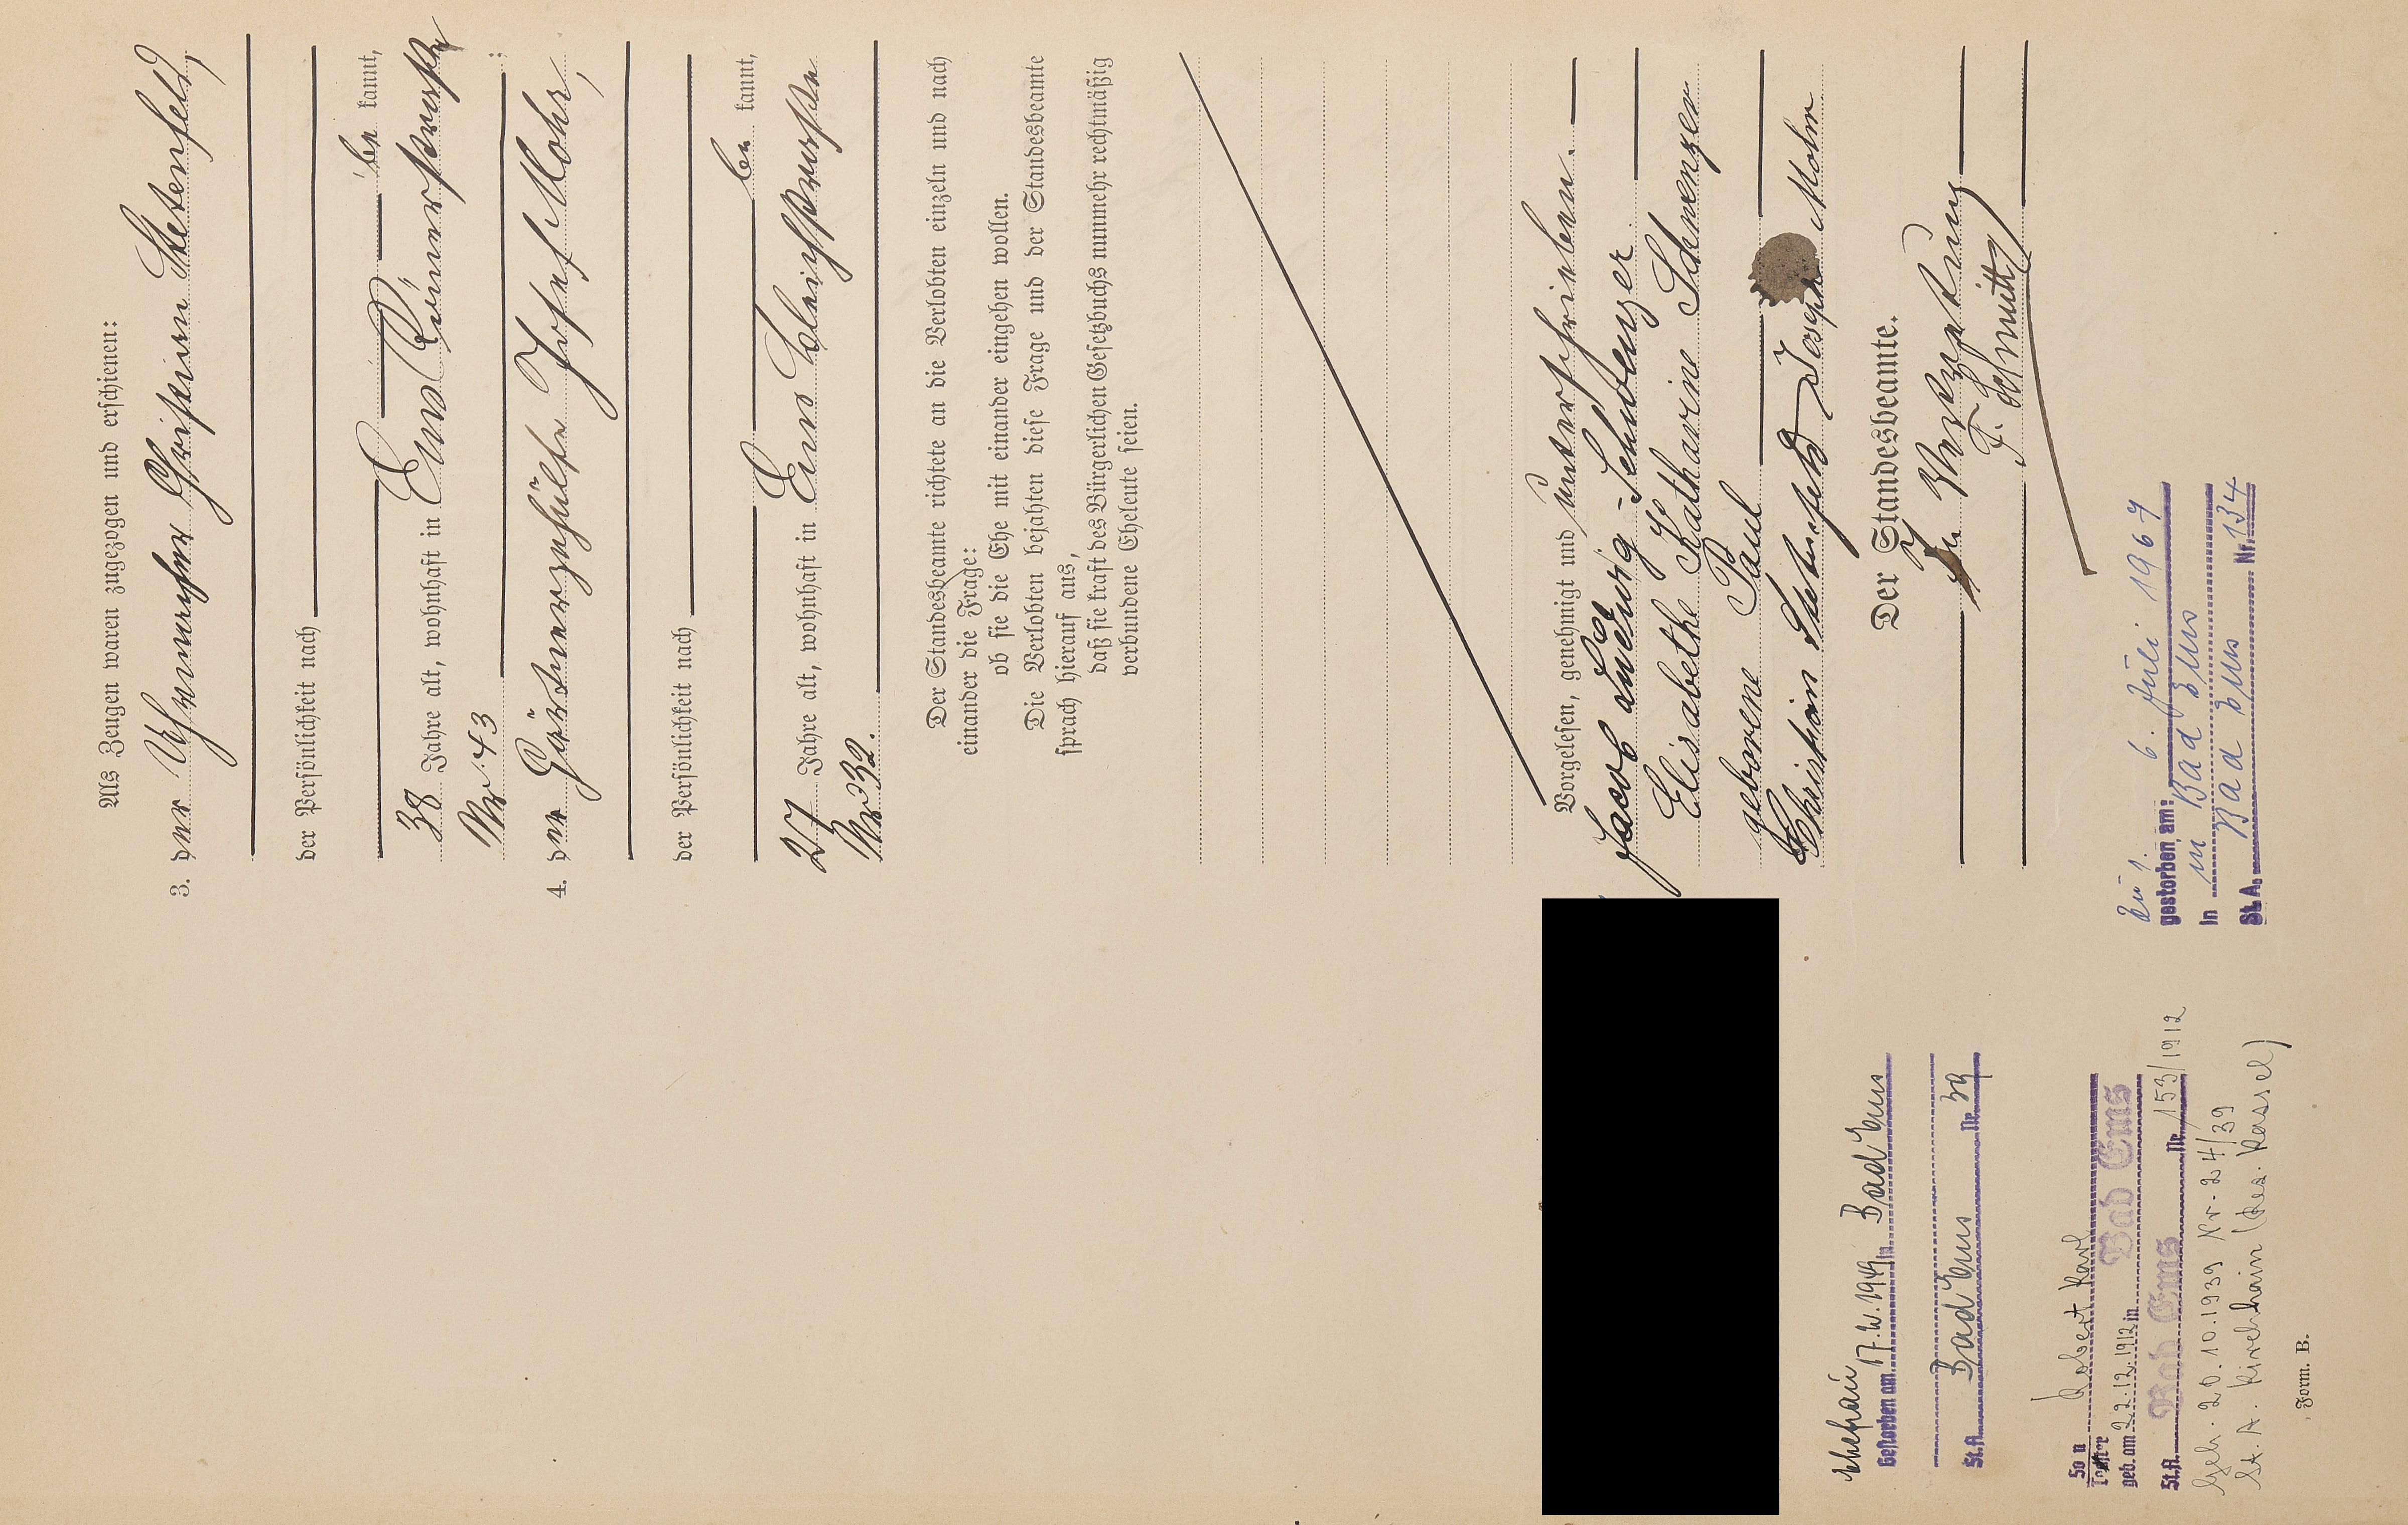 Als Zeugen waren zugezogen und erschienen:
3. der Uhrmacher Christian Stetenfeld,
der Persönlichkeit nach
be kannt,
38 Jahre alt, wohnhaft in Ems Römerstraße
Nr 43 :
4. der Gärtnergehülfe Josef Mohr,
der Persönlichkeit nach
be kannt,
27 Jahre alt, wohnhaft in Ems Bleichstraße
Nr 32.
Der Standesbeamte richtete an die Verlobten einzeln und nach
einander die Frage:
ob sie die Ehe mit einander eingehen wollen.
Die Verlobten bejahten diese Frage und der Standesbeamte
sprach hierauf aus,
daß sie kraft des Bürgerlichen Gesetzbuchs nunmehr rechtmäßig
verbundene Eheleute seien.
Vorgelesen, genehmigt und unterschrieben.
Jacob Ludwig Schwenzer
Elisabethe Katharine Schwenzer
geborene Paul
Christian Joseph Mohr
Der Standesbeamte.
In Vertretung
F. Schmitt
Ehefrau
Gestorben am 17. 2. 1949 in Bad Ems
St.A. Bad Ems Nr. 39
Sohn Robert Karl
Tochter
geb. am 22.12.1912 in Bad Ems
St.A. Bad Ems Nr. 153/1912
Geh. 20.10.1939 Nr. 24/39
St. A. Kirchhain (Bez. Kassel)
Zu 1.
gestorben am: 6. Juli 1967
in Bad Ems
St.A. Bad Ems Nr. 134
Form. B.